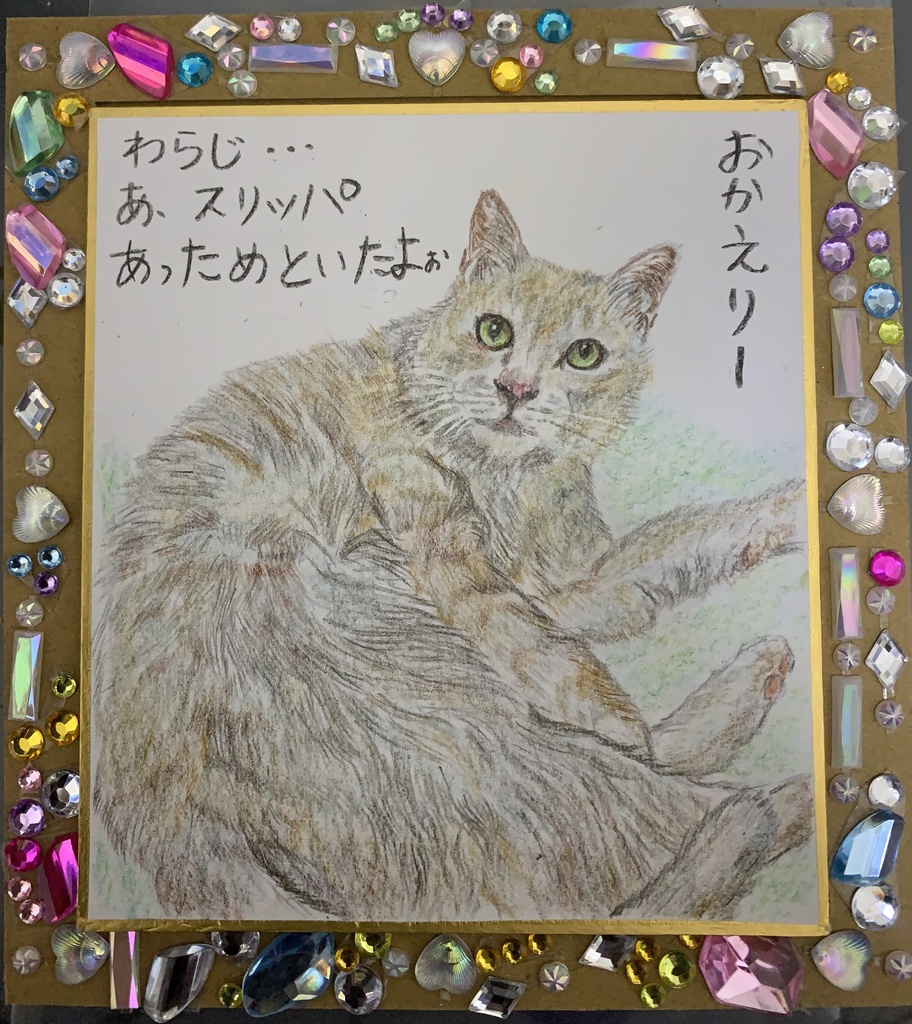 おかえりー
わらじ…
あ、スリッパ
あっためといたよぉ